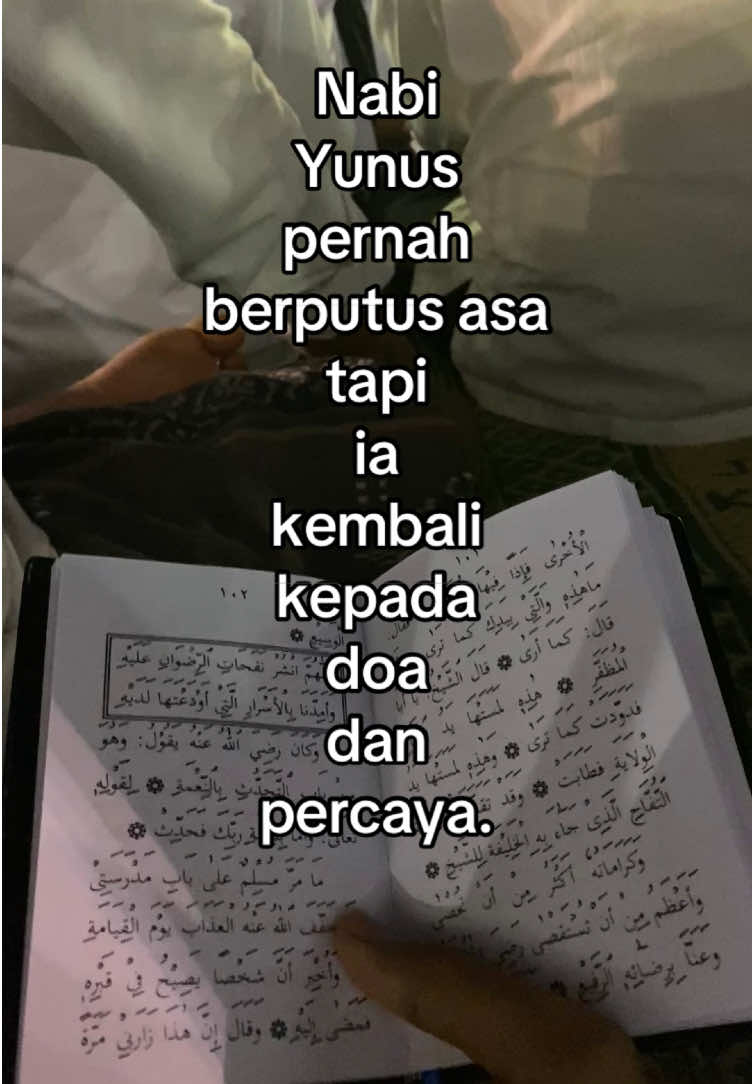 Nabi
Yunus
pernah
berputus asa
tapi
ia
kembali
kepada
doa
dan
percaya.
١٠٢
انْشُرْ نَفَحَاتِ الرِّضْوَانِ عَلَيْهِ
وَأَمِدَّنَا بِالْأَسْرَارِ الَّتِي أَوْدَعْتَهَا لَدَيْهِ
وَكَانَ رَضِيَ اللهُ عَنْهُ يَقُولُ: وَهُوَ
التَّحَدُّثِ بِالنِّعْمَةِ ۞ لِقَوْلِهِ
رَبِّكَ فَحَدِّثْ ۞
مَا مَرَّ مُسْلِمٌ عَلَى بَابِ مَدْرَسَتِيْ
اللهُ عَنْهُ الْعَذَابَ يَوْمَ الْقِيَامَةِ
وَأُخْبِرَ أَنَّ شَخْصًا يَصِيْحُ فِيْ قَبْرِهِ
فَمَضَى إِلَيْهِ ۞ وَقَالَ إِنَّ هٰذَا زَارَنِيْ مَرَّةً
الْأُخْرَى فَإِذَا فِيْهَا
مَاهٰذِهِ وَالَّتِيْ بِيَدِكَ كَمَا تَرَى
قَالَ: كَمَا أَرَى ۞ قَالَ الشَّيْخُ: يَا أَبَا
الْمُظَفَّرِ ۞ هٰذِهِ لَمَسَتْهَا يَدُ
فَدَوَّدَتْ كَمَا تَرَى ۞ وَهٰذِهِ لَمَسَتْهَا يَدُ
الْوِلَايَةِ فَطَابَتْ ۞ وَقَدْ
التُّفَّاحِ الَّذِيْ جَاءَ بِهِ الْخَلِيْفَةُ لِلشَّيْخِ ۞
وَكَرَامَاتُهُ أَكْثَرُ مِنْ أَنْ تُحْصَى
وَأَعْظَمُ مِنْ أَنْ تُسْتَقْصَى رَضِيَ
وَعَنَّا بِرِضَائِهِ الرَّفِيْعِ ۞